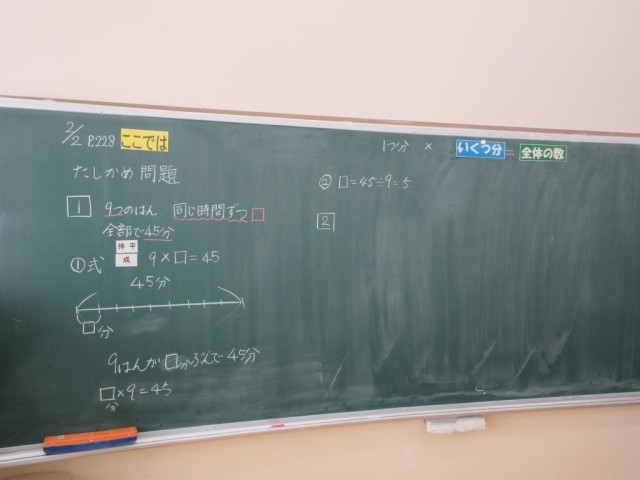 2/2 P.228 ここでは
たしかめ問題
1 9つのはん 同じ時間ずつ□
全部で45分
①式 9×□=45
45分
□分
9はんが□分ずつで45分
□×9=45
分
1つ分 × いくつ分 = 全体の数
②□=45÷9=5
2